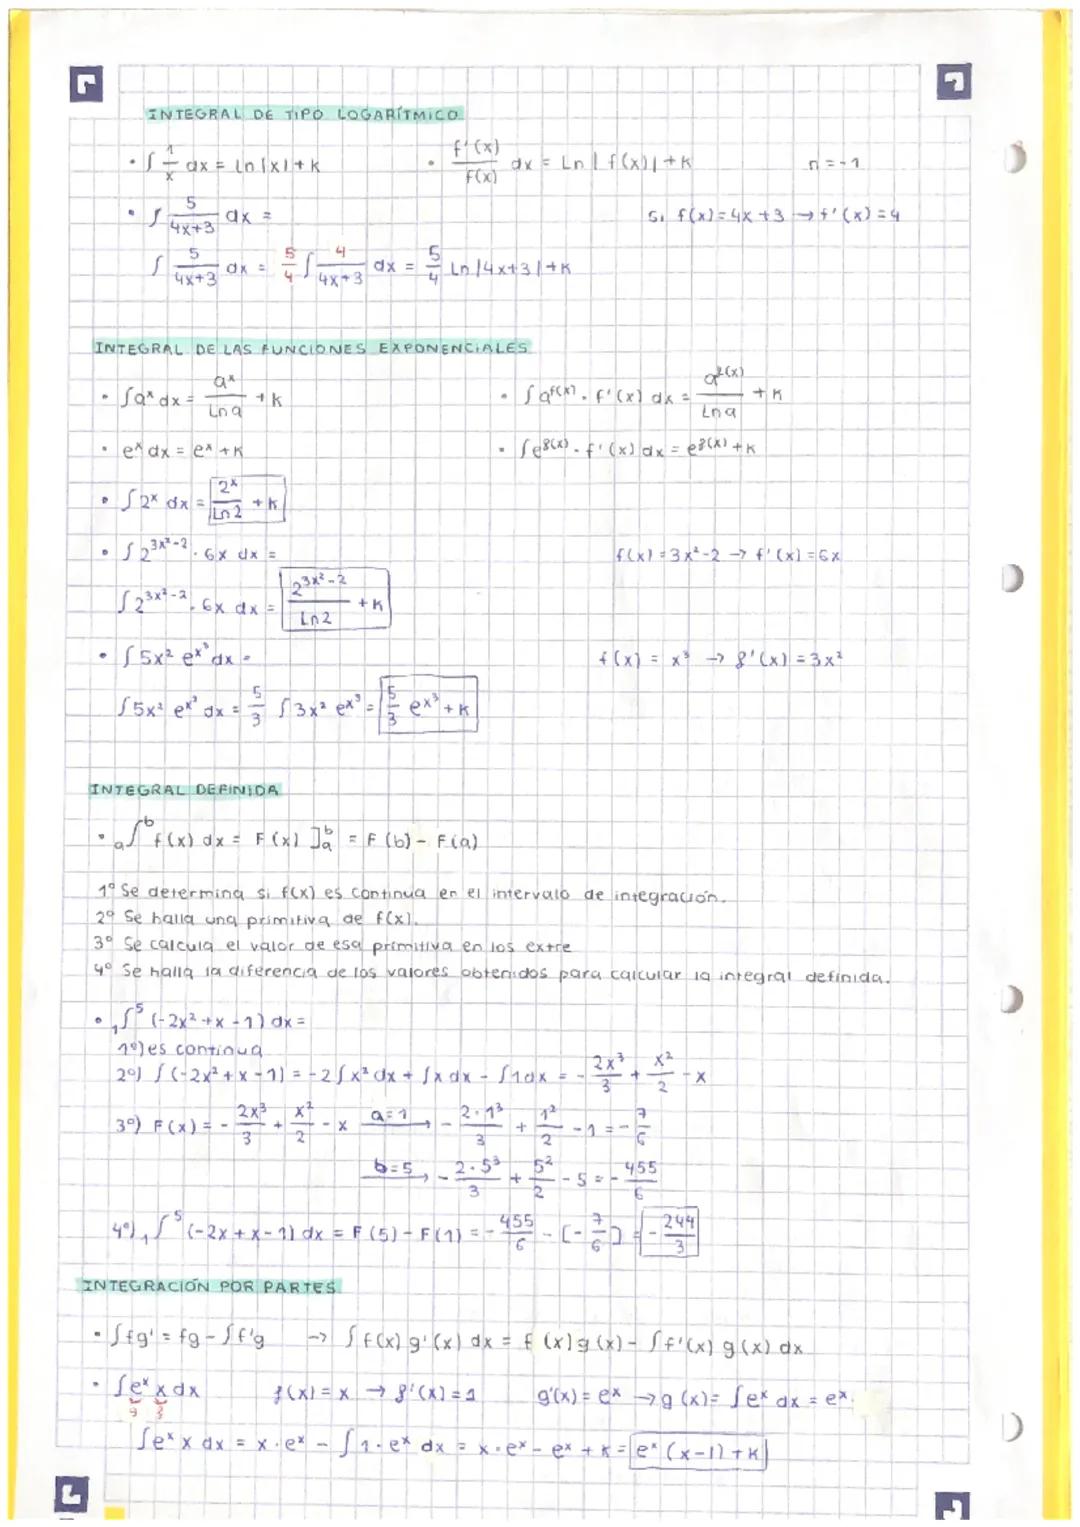 INTEGRAL DE TIPO LOGARÍTMICO
• ∫ 1/x dx = Ln |x| + K • f'(x)/f(x) dx = Ln | f(x) | + K n = -1
• ∫ 5/(4x+3) dx = Si f(x) = 4x + 3 → f'(x) = 4
∫ 5/(4x+3) dx = 5/4 ∫ 4/(4x+3) dx = 5/4 Ln |4x+3| + K
INTEGRAL DE LAS FUNCIONES EXPONENCIALES
• ∫a^x dx = a^x/Ln a + K • ∫ a^f(x) . f'(x) dx = a^f(x)/Ln a + K
• e^x dx = e^x + K • ∫e^f(x) . f'(x) dx = e^f(x) + K
• ∫ 2^x dx = 2^x/Ln 2 + K
• ∫ 2^(3x²-2) . 6x dx = f(x) = 3x² - 2 → f'(x) = 6x
∫ 2^(3x²-2) . 6x dx = 2^(3x²-2)/Ln 2 + K
• ∫ 5x² e^x³ dx = f(x) = x³ → f'(x) = 3x²
∫ 5x² e^x³ dx = 5/3 ∫ 3x² e^x³ = 5/3 e^x³ + K
INTEGRAL DEFINIDA
• a∫b f(x) dx = F(x) ]ba = F(b) - F(a)
1º Se determina si f(x) es continua en el intervalo de integración.
2º Se halla una primitiva de f(x).
3º Se calcula el valor de esa primitiva en los extre
4º Se halla la diferencia de los valores obtenidos para calcular la integral definida.
• 1∫5 (-2x² + x - 1) dx =
1º) es continua
2º) ∫ (-2x² + x - 1) = -2∫ x² dx + ∫x dx - ∫1dx = - 2x³/3 + x²/2 - x
3º) F(x) = - 2x³/3 + x²/2 - x a = 1 → - 2·1³/3 + 1²/2 - 1 = - 7/6
b = 5 → - 2·5³/3 + 5²/2 - 5 = - 455/6
4º) 1∫5 (-2x + x - 1) dx = F(5) - F(1) = - 455/6 - [- 7/6] = - 244/3
INTEGRACIÓN POR PARTES
• ∫fg' = fg - ∫f'g → ∫ f(x) g'(x) dx = f(x) g(x) - ∫f'(x) g(x) dx
• ∫e^x x dx f(x) = x → f'(x) = 1 g'(x) = e^x → g(x) = ∫e^x dx = e^x.
g f
∫e^x x dx = x · e^x - ∫1 · e^x dx = x · e^x - e^x + K = e^x (x-1) + K